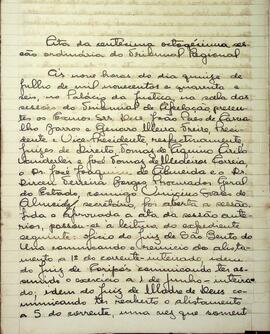 Ata da centésima octogésima ses-
são ordinária do Tribunal Regional
Ás nove horas do dia quinze de
julho de mil novecentos e quarenta e
seis, no Palácio da Justiça, na sala das
sessões do Tribunal de Apelação, presen-
tes os Exmos Srs. Des. João Paes de Carva
lho Barros e Genaro Freire, Presi-
dente e Vice Presidente respectivamente,
juizes de direito Tomás de Aquino Cirilo
Wanderlei e José Tomás de Medeiros Correia,
o Dr. José Joaquim de Almeida e o Dr.
Borges Procurador Geral
do Estado, comigo
Almeida, secretário, foi aberta a sessão.
Lida e aprovada ata da sessão ante-
rior, passou-se á leitura do expediente
seguinte: oficio do juiz de São Bento do
Una comunicando o reinicio do alista-
mento a 1º do corrente; idem,
do juiz de comunicando ter as-
sumido o exercicio a 1 de junho;
idem do juiz de co-
municando ter reaberto o alistamento
a 5 do corrente, uma vez que soment